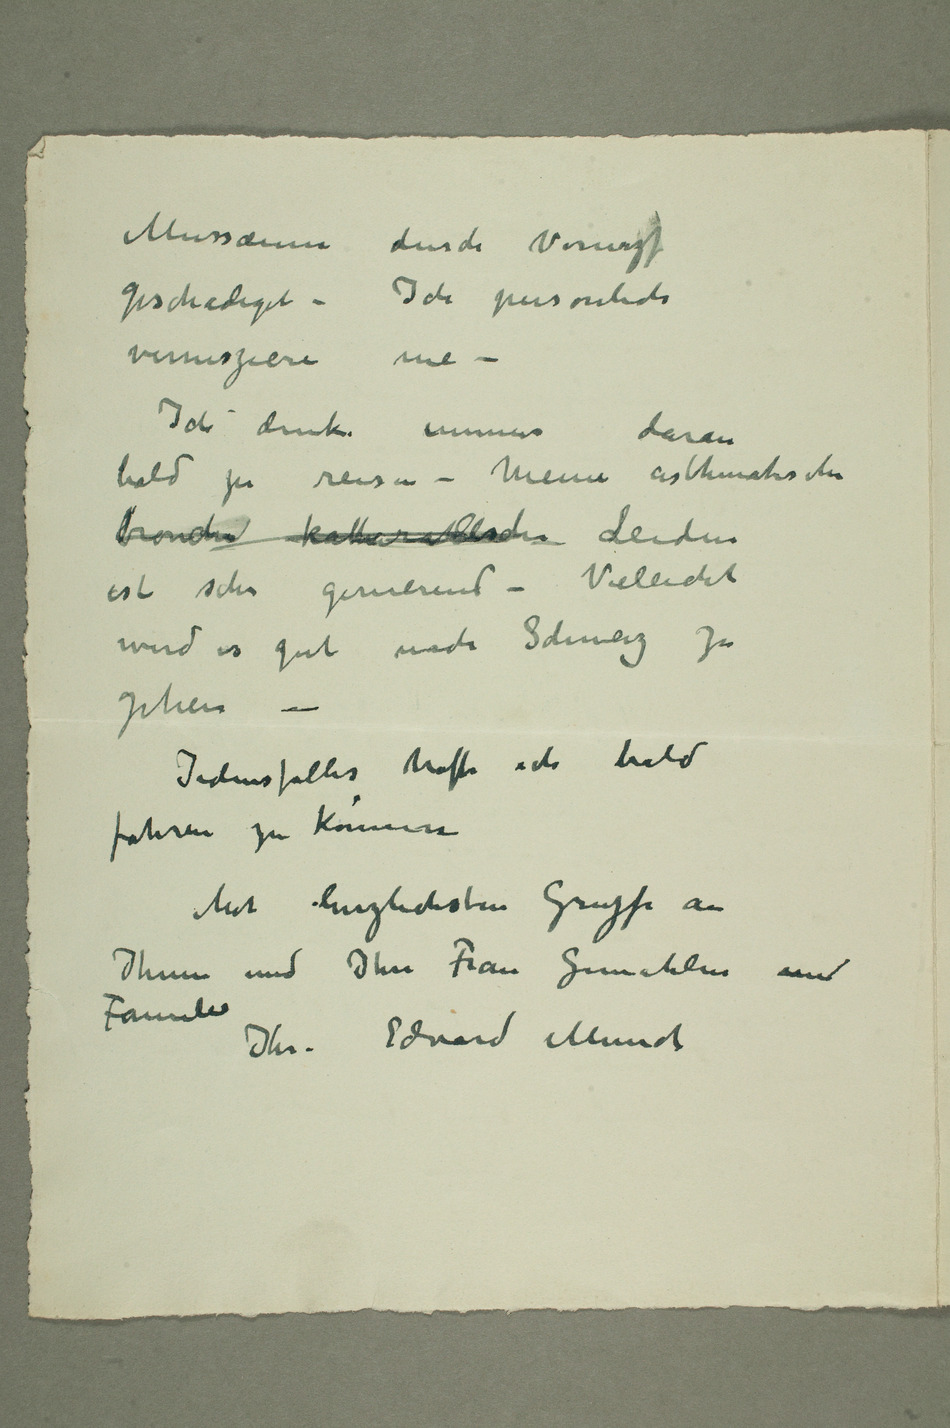 Mussæum durch Vernyss
geschädiget – Ich personlich
vernisziere nie –
Ich denke immer daran
bald zu reisen – Meine asthmatische
bronchie kattarallische Leiden
ist sehr genierend – Vielleicht
wird es gut nach Schweiz zu
gehen –
Jedensfalles hoffe ich bald
fahren zu können
Mit herzlichsten Grüsse an
Ihnen und Ihre Frau Gemahlin und
Familie
Ihr. Edvard Munch